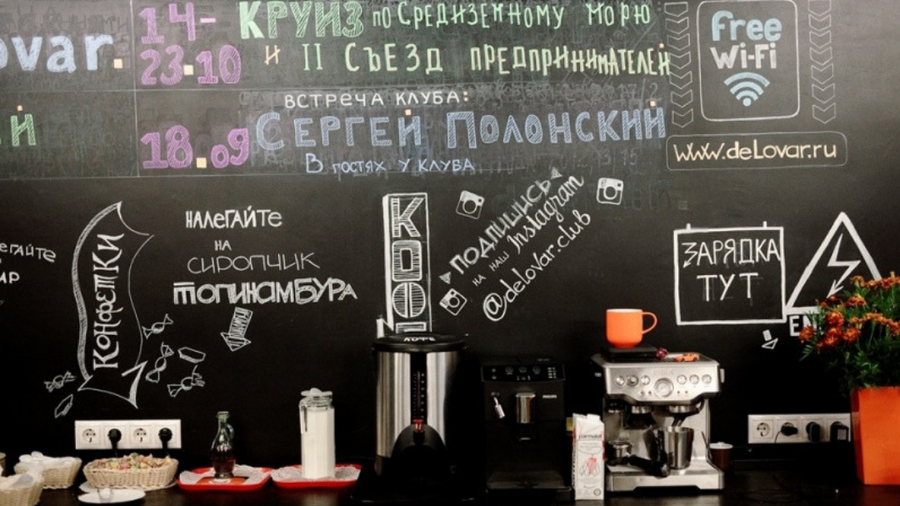 ovar.
14-
23.10
КРУИЗ по Средиземному морю
и II съезд предпринимателей
Free
Wi-Fi
www.deLovar.ru
й
18.09
ВСТРЕЧА КЛУБА:
Сергей Полонский
В гостях у клуба
КОНФЕТКИ
НАЛЕГАЙТЕ
НА
СИРОПЧИК
ТОПИНАМБУРА
КОФ
ПОДПИШИСЬ
НА НАШ Instagram
@delovar.club
ЗАРЯДКА
ТУТ